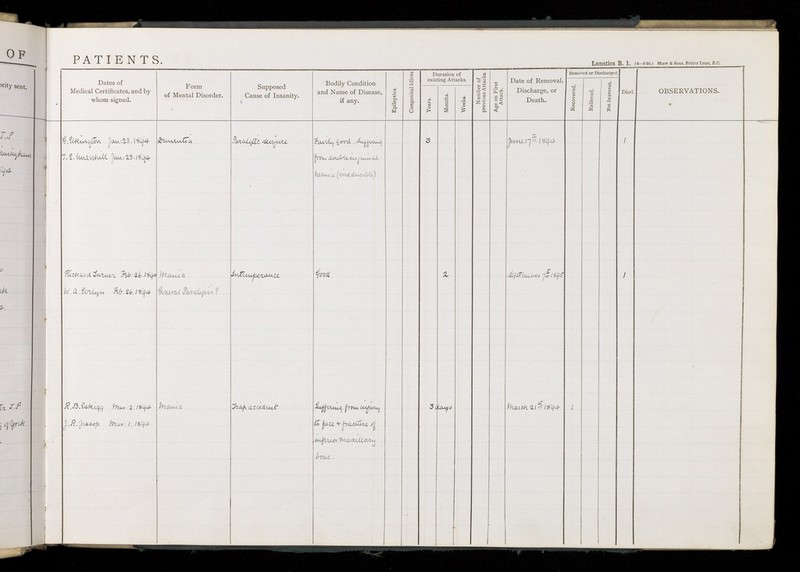 OF
PATIENTS.
Lunatics B. 1.
Shaw & Sons, Fetter Lane, E.C.
Dates of
Medical Certificates, and by
whom signed.
Form
of Mental Disorder.
Supposed
Cause of Insanity.
Bodily Condition
and Name of Disease,
if any.
Epileptics.
Congenital Idiots
Duration of
existing Attacks.
Years.
Months.
Weeks.
Number of
previous Attacks
Age on First
Attack
Date of Removal,
Discharge, or
Death.
Removed or Discharged
Recovered.
Relieved.
Not Improved.
Died.
OBSERVATIONS.
Jan: 23. 1894 Dementia Paralytic seizure Fairly good. Suffering 3 June 17th 1894 1
Jan: 23. 1894 from double inguinal
hernia (irreducible)
Richard Turner Feb: 26. 1894 Mania Intemperance Good 2 September 7th 1
W. A. Evelyn Feb: 26. 1894 General Paralysis?
Mar: 2. 1894 Mania Trap accident Suffering from injury 3 days March 21st 1894 1
J. R. Jessop Mar: 1. 1894 to face & fracture of
inferior maxillary
bone.